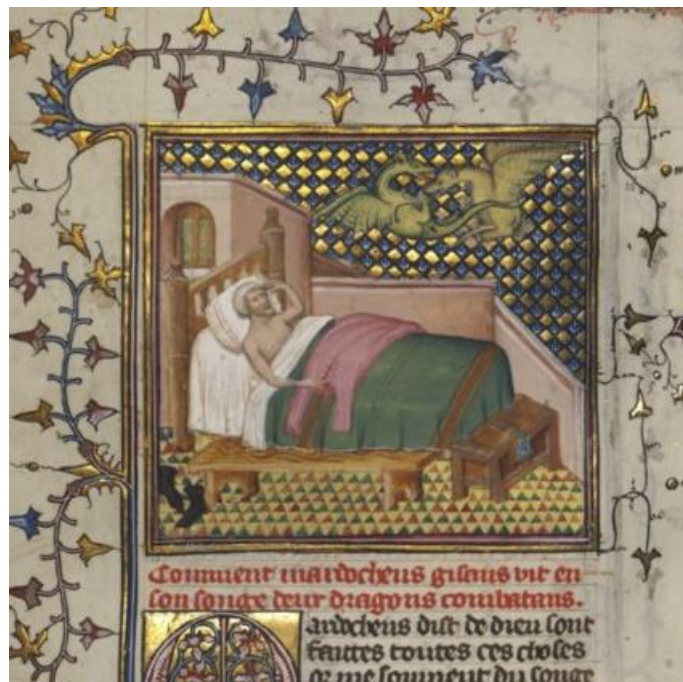 Comment mardocheus gisans vit en
son songe deux dragons combatans.
Mardocheus dist de dieu sont
faittes toutes ces choses
me souuient du songe